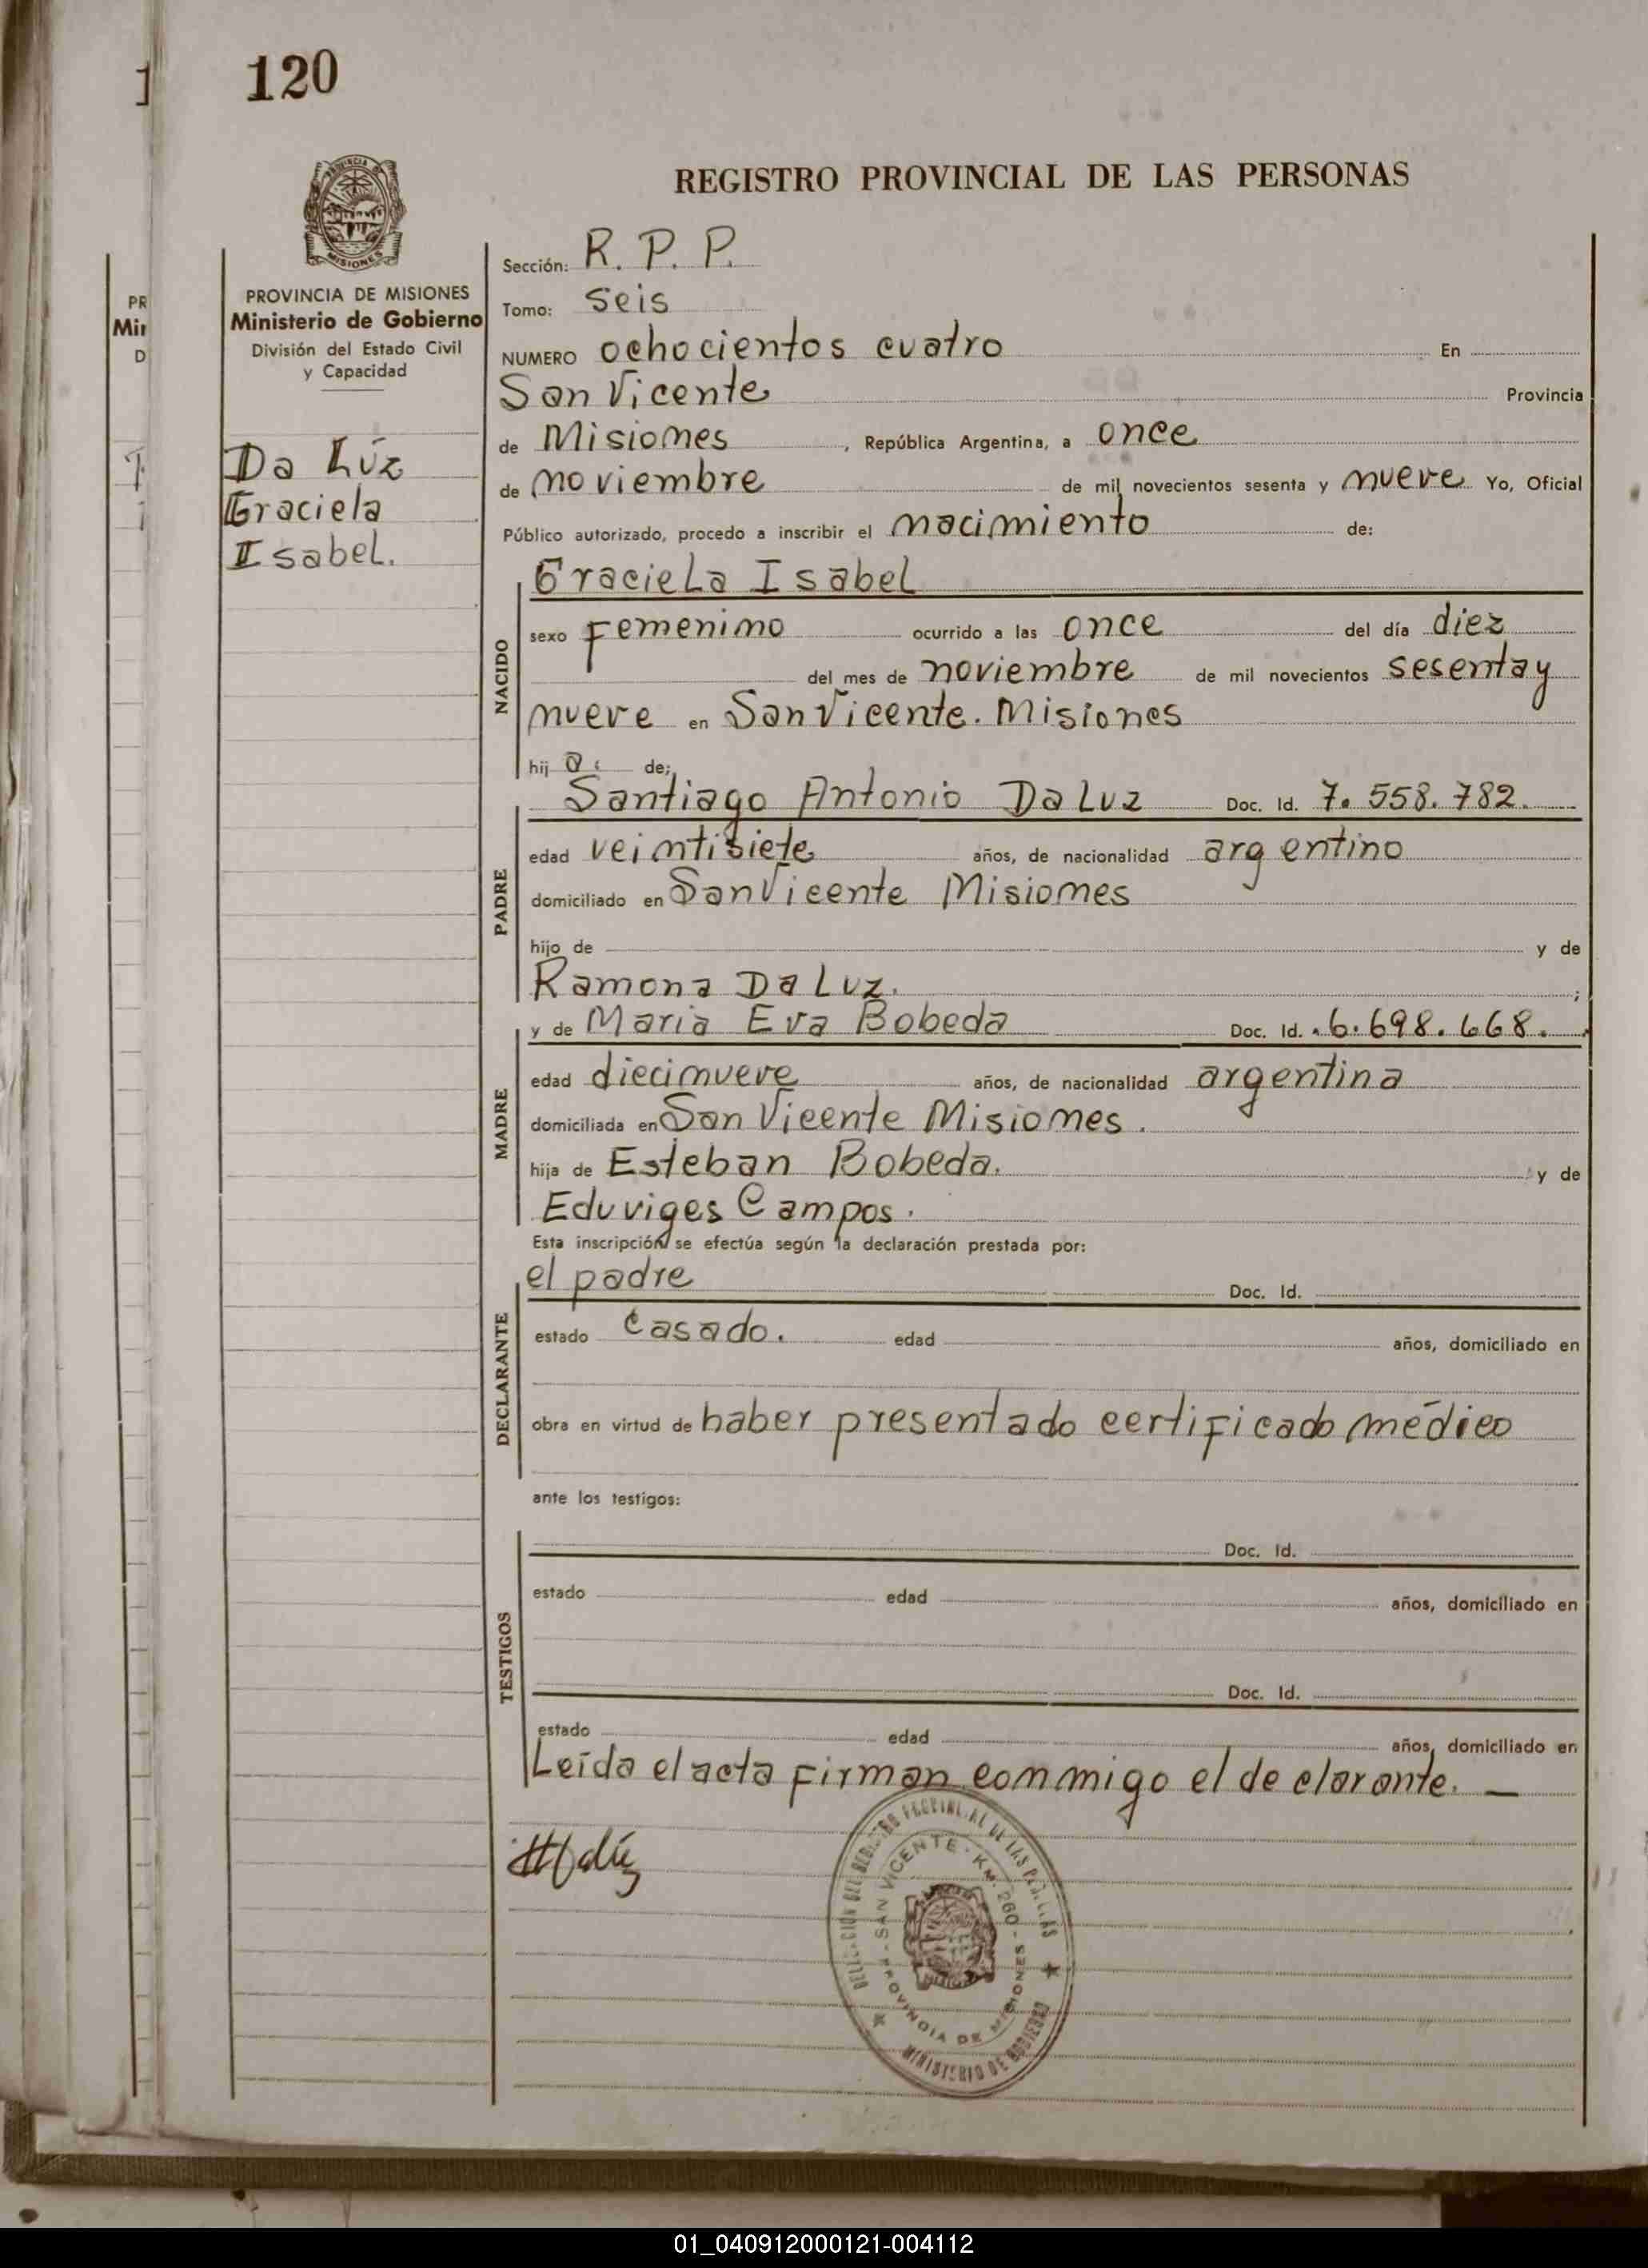 120
REGISTRO PROVINCIAL DE LAS PERSONAS
PROVINCIA DE MISIONES
Ministerio de Gobierno
División del Estado Civil
y Capacidad
Da Lúz
Graciela
Isabel.
Sección: R. P. P.
Tomo: seis
NUMERO ochocientos cuatro En
San Vicente Provincia
de Misiones, República Argentina, a once
de noviembre de mil novecientos sesenta y nueve Yo, Oficial
Público autorizado, procedo a inscribir el nacimiento de:
Graciela Isabel
NACIDO
sexo Femenino ocurrido a las once del día diez
del mes de noviembre de mil novecientos sesenta y
nueve en San Vicente. Misiones
hija de;
Santiago Antonio Da Luz Doc. Id. 7.558.782.
PADRE
edad veintisiete años, de nacionalidad argentino
domiciliado en San Vicente Misiones
hijo de y de
Ramona Da Luz. ;
y de Maria Eva Bobeda Doc. Id. 6.698.668.
MADRE
edad diecinueve años, de nacionalidad argentina
domiciliada en San Vicente Misiones.
hija de Esteban Bobeda. y de
Eduviges Campos.
Esta inscripción se efectúa según la declaración prestada por:
el padre Doc. Id.
DECLARANTE
estado Casado. edad años, domiciliado en
obra en virtud de haber presentado certificado médico
ante los testigos:
Doc. Id.
TESTIGOS
estado edad años, domiciliado en
Doc. Id.
estado edad años, domiciliado en
Leída el acta firman conmigo el declarante. —
SAN VICENTE - KM. 260 - PROVINCIA DE MISIONES
MINISTERIO DE GOBIERNO
01_040912000121-004112